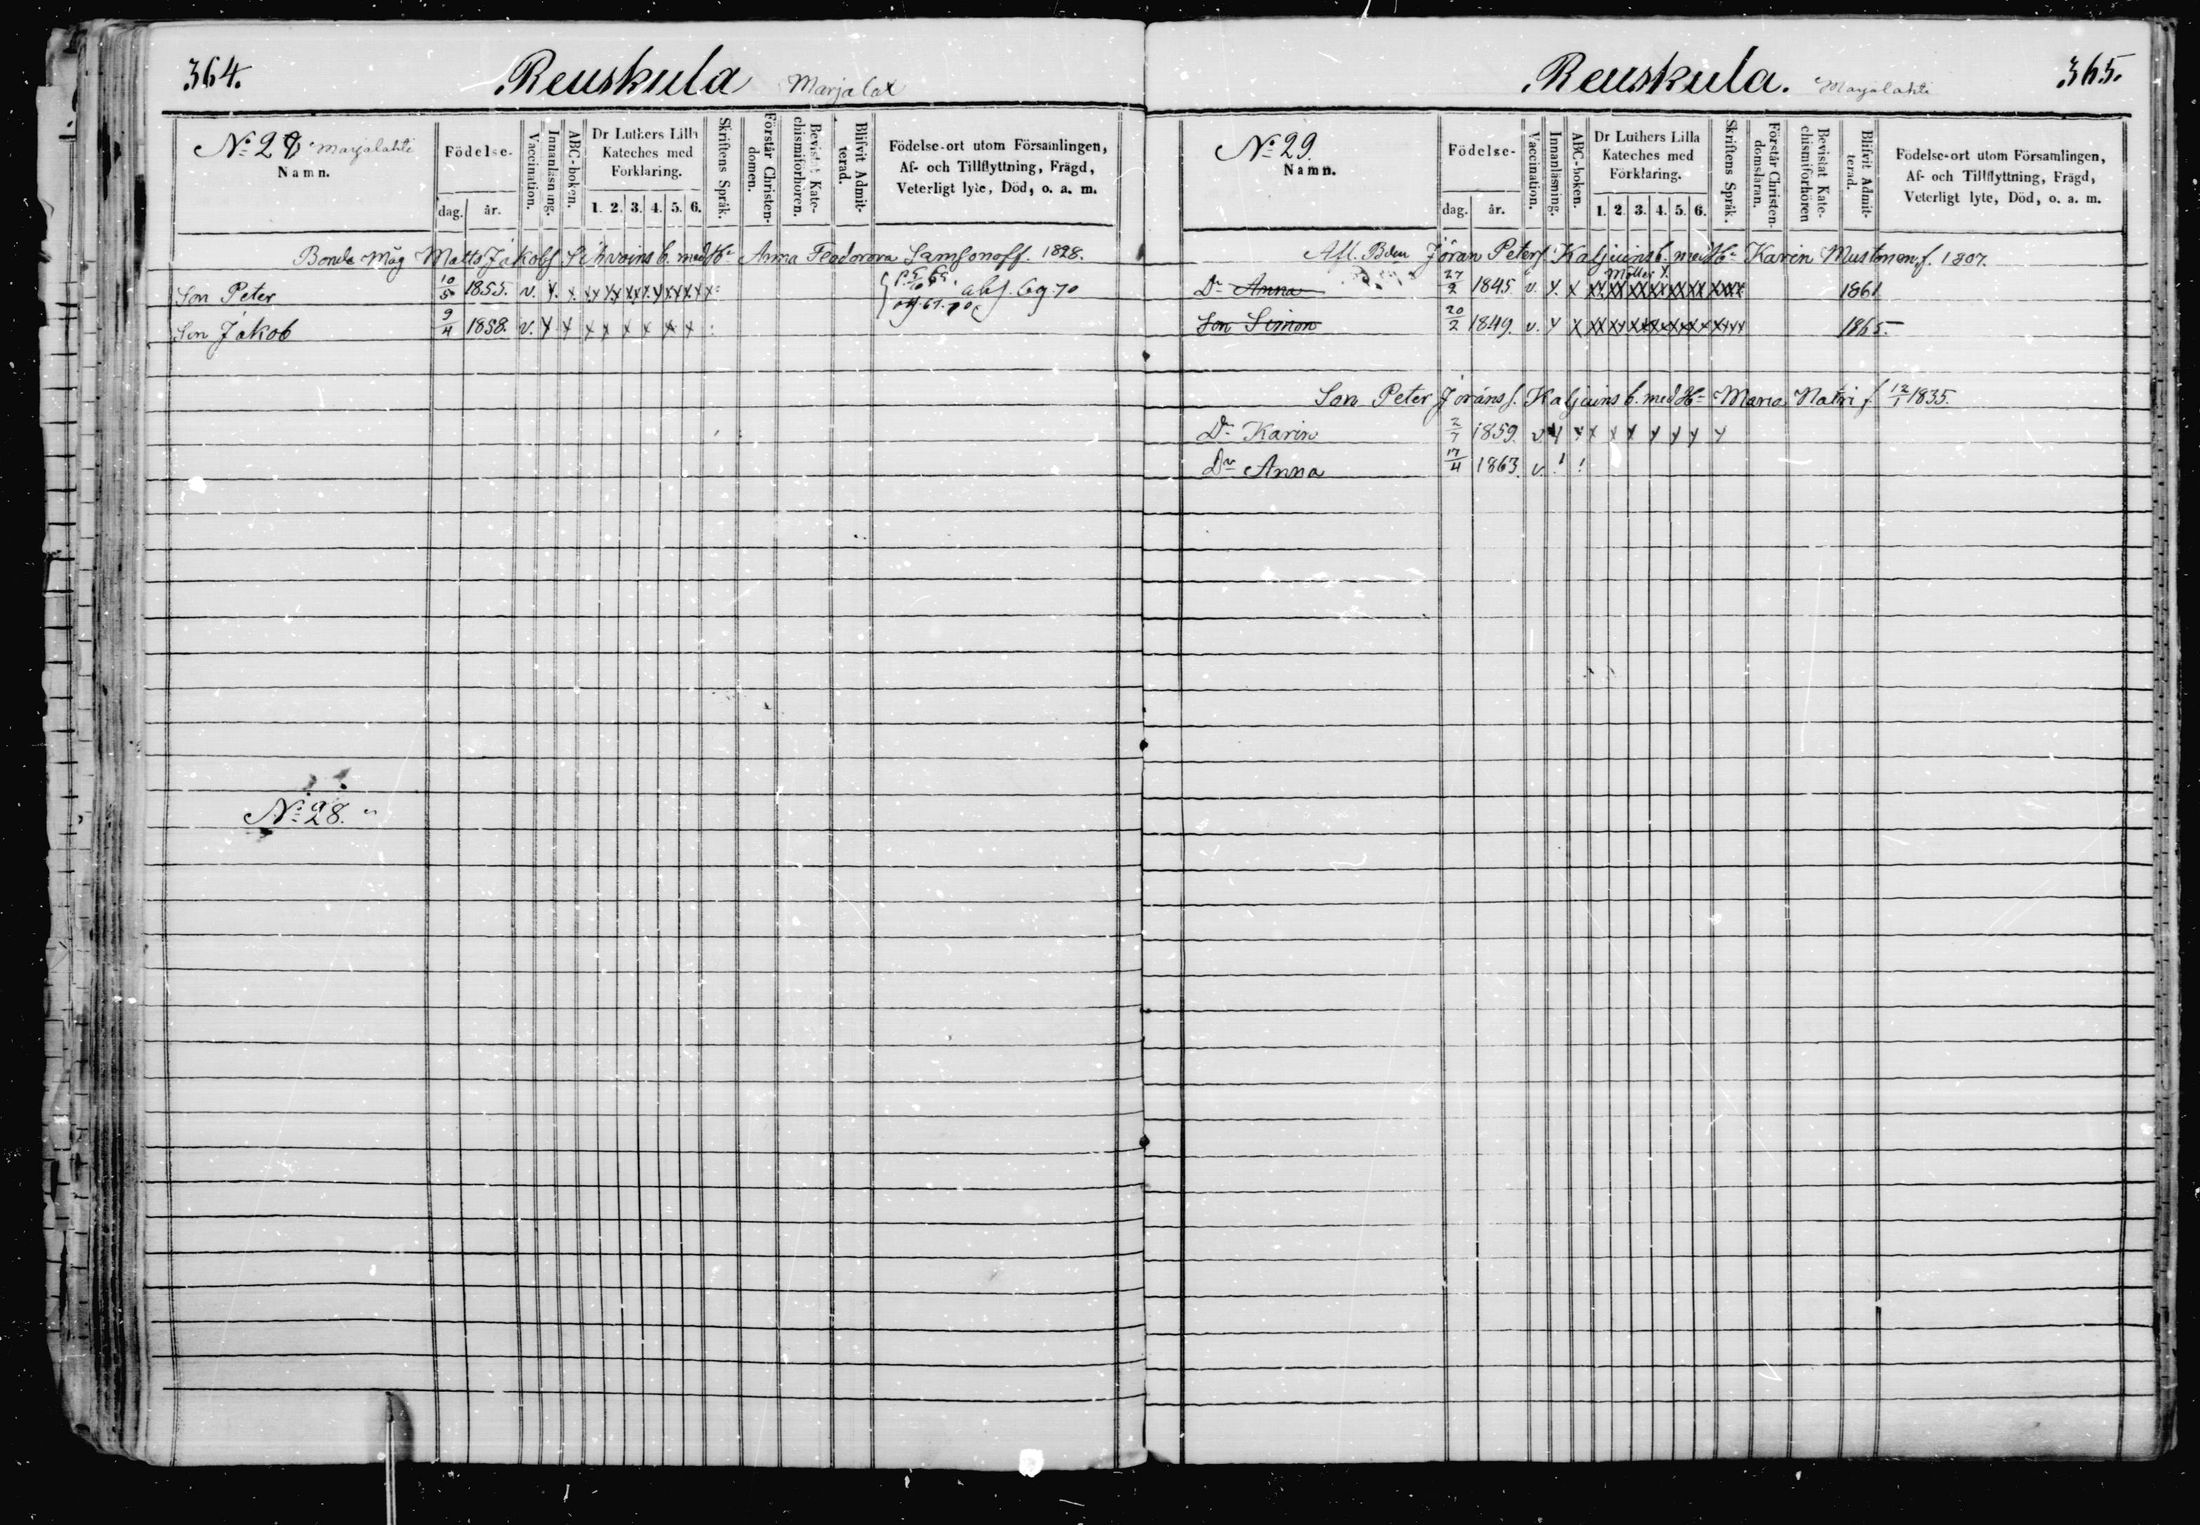 364.
Reuskula Marjalax
No 28 Marjalahti
Namn.
Födelse-
dag. år.
Vaccination.
Innanläsning.
ABC-boken.
Dr Luthers Lilla
Kateches med
Förklaring.
1. 2. 3. 4. 5. 6.
Skriftens Språk.
Förstår Christen-
domen.
Bevistat Kate-
chismiförhören.
Blifvit Admit-
terad.
Födelse-ort utom Församlingen,
Af- och Tillflyttning, Frägd,
Veterligt lyte, Död, o. a. m.
Bonde Måg Matts Jakobs. Sihvoins b. med H- Anna Feodorova Samsonoff. 1828.
Son Peter 10/5 1855. v. x. x xx xx xx x xx xx x
Son Jakob 9/4 1858. v. x x x x x x x x
No 28.
365.
Reuskula. Marjalahti
No 29.
Namn.
Födelse-
dag. år.
Vaccination.
Innanläsning.
ABC-boken.
Dr Luthers Lilla
Kateches med
Förklaring.
1. 2. 3. 4. 5. 6.
Skriftens Språk.
Förstår Christen-
domsläran.
Bevistat Kate-
chismiförhören
Blifvit Admit-
terad.
Födelse-ort utom Församlingen,
Af- och Tillflyttning, Frägd,
Veterligt lyte, Död, o. a. m.
Afl. Bdem Jöran Peters. Kaljuins b. med H- Karin Mustonen f. 1807.
Dr Anna 27/2 1845. v. x. x xx xx xx xx xx xx xxxx 1861
Son Simon 20/2 1849. v. x x xx xx xx xx xx xx xxxx 1865.
Son Peter Jörans s. Kaljuins b. med H- Maria Natri f. 12/1 1835.
Dr Karin 2/7 1859. v x x x x x x x x x
Dr Anna 17/4 1863. v. ! !